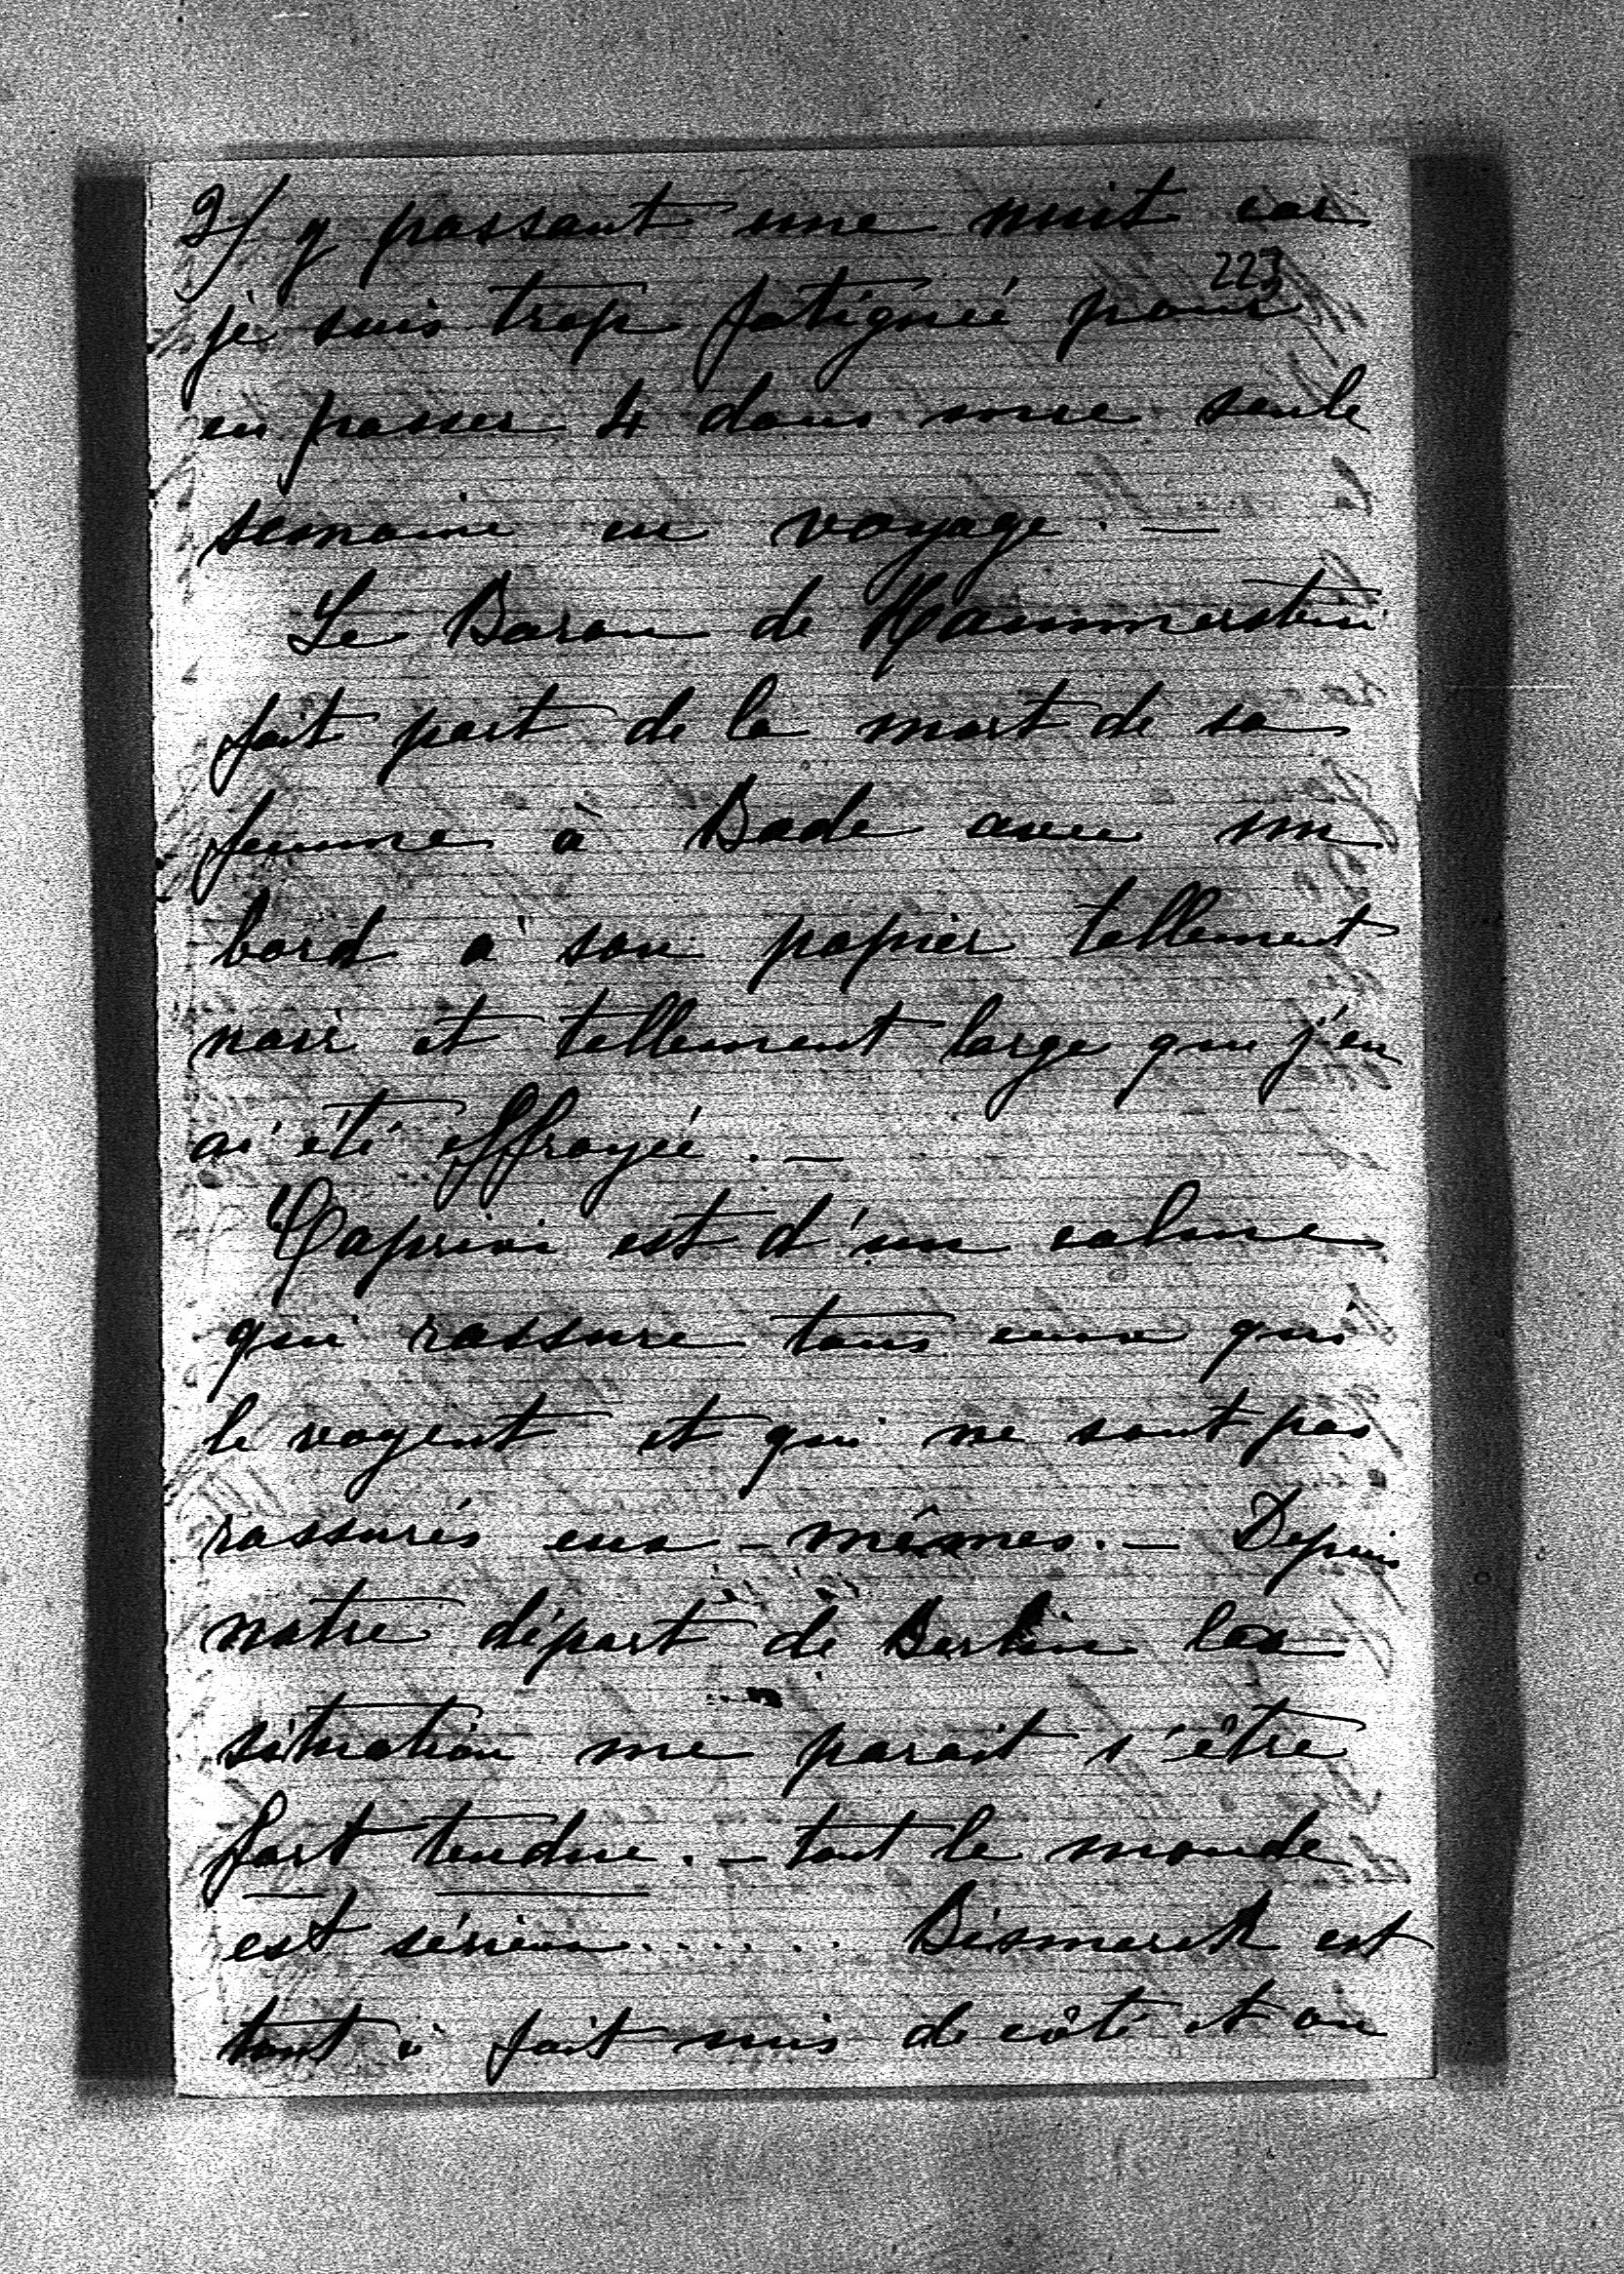 2/ y passant une nuit car
223
je suis trop fatiguée pour
en passer 4 dans une seule
semaine en voyage. —
Le Baron de Hammerstein
fait part de la mort de sa
femme à Bade avec un
bord à son papier tellement
noir et tellement large que j'en
ai été effrayée. —
Caprivi est d'un calme
qui rassure tous ceux qui
le voyent et qui ne sont pas
rassurés eux-mêmes. — Depuis
notre départ de Berlin la
situation me parait s'être
fort tendue. — tout le monde
est sérieux....... Bismarck est
tout à fait mis de côté et on